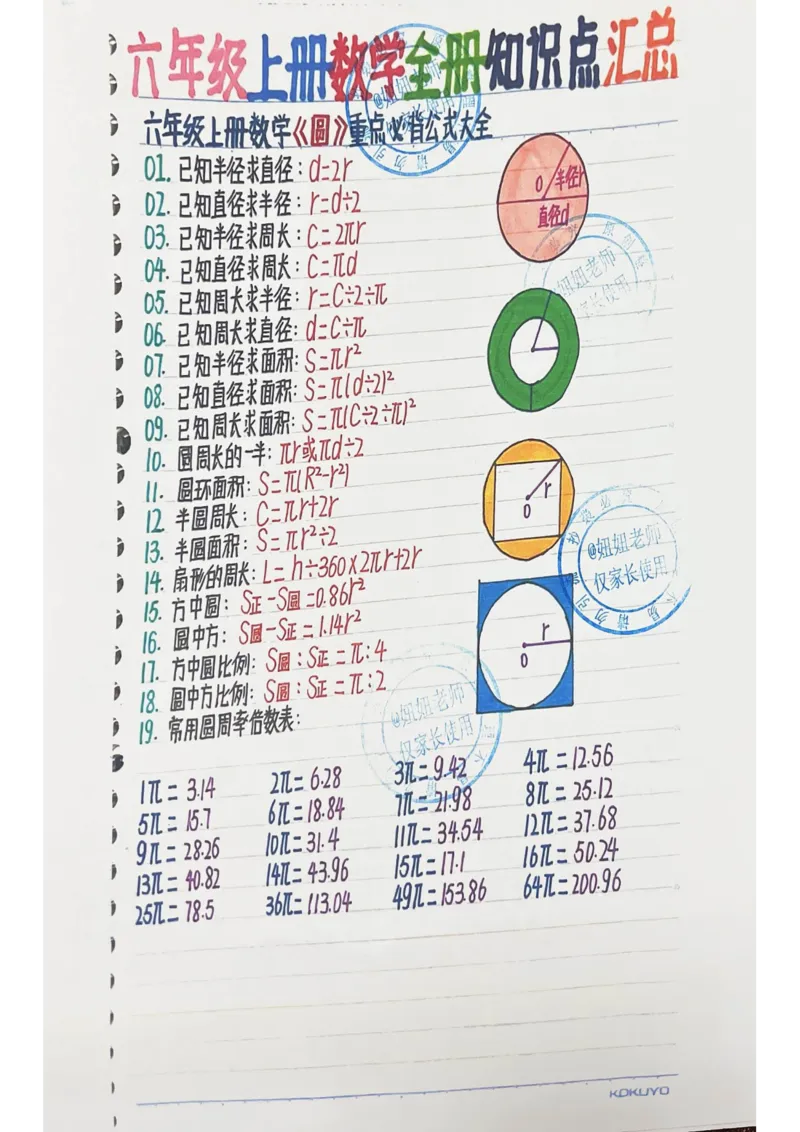 六年级上册数学全册知识点汇总
六年级上册数学《圆》重点必背公式大全
01. 已知半径求直径: d=2r
02. 已知直径求半径: r=d÷2
03. 已知半径求周长: C=2πr
04. 已知直径求周长: C=πd
05. 已知周长求半径: r=C÷2÷π
06. 已知周长求直径: d=C÷π
07. 已知半径求面积: S=πr²
08. 已知直径求面积: S=π(d÷2)²
09. 已知周长求面积: S=π(C÷2÷π)²
10. 圆周长的一半: πr或πd÷2
11. 圆环面积: S=π(R²-r²)
12 半圆周长: C=πr+2r
13. 半圆面积: S=πr²÷2
14. 扇形的周长: L=n÷360×2πr+2r
15. 方中圆: S正-S圆=0.86r²
16. 圆中方: S圆-S正=1.14r²
17. 方中圆比例: S圆:S正=π:4
18. 圆中方比例: S圆:S正=π:2
19. 常用圆周率倍数表:
O 半径r
直径d
r
O
r
O
1π=3.14 2π=6.28 3π=9.42 4π=12.56
5π=15.7 6π=18.84 7π=21.98 8π=25.12
9π=28.26 10π=31.4 11π=34.54 12π=37.68
13π=40.82 14π=43.96 15π=17.1 16π=50.24
25π=78.5 36π=113.04 49π=153.86 64π=200.96
@妞妞老师
仅家长使用
@妞妞老师
仅家长使用
KOKUYO